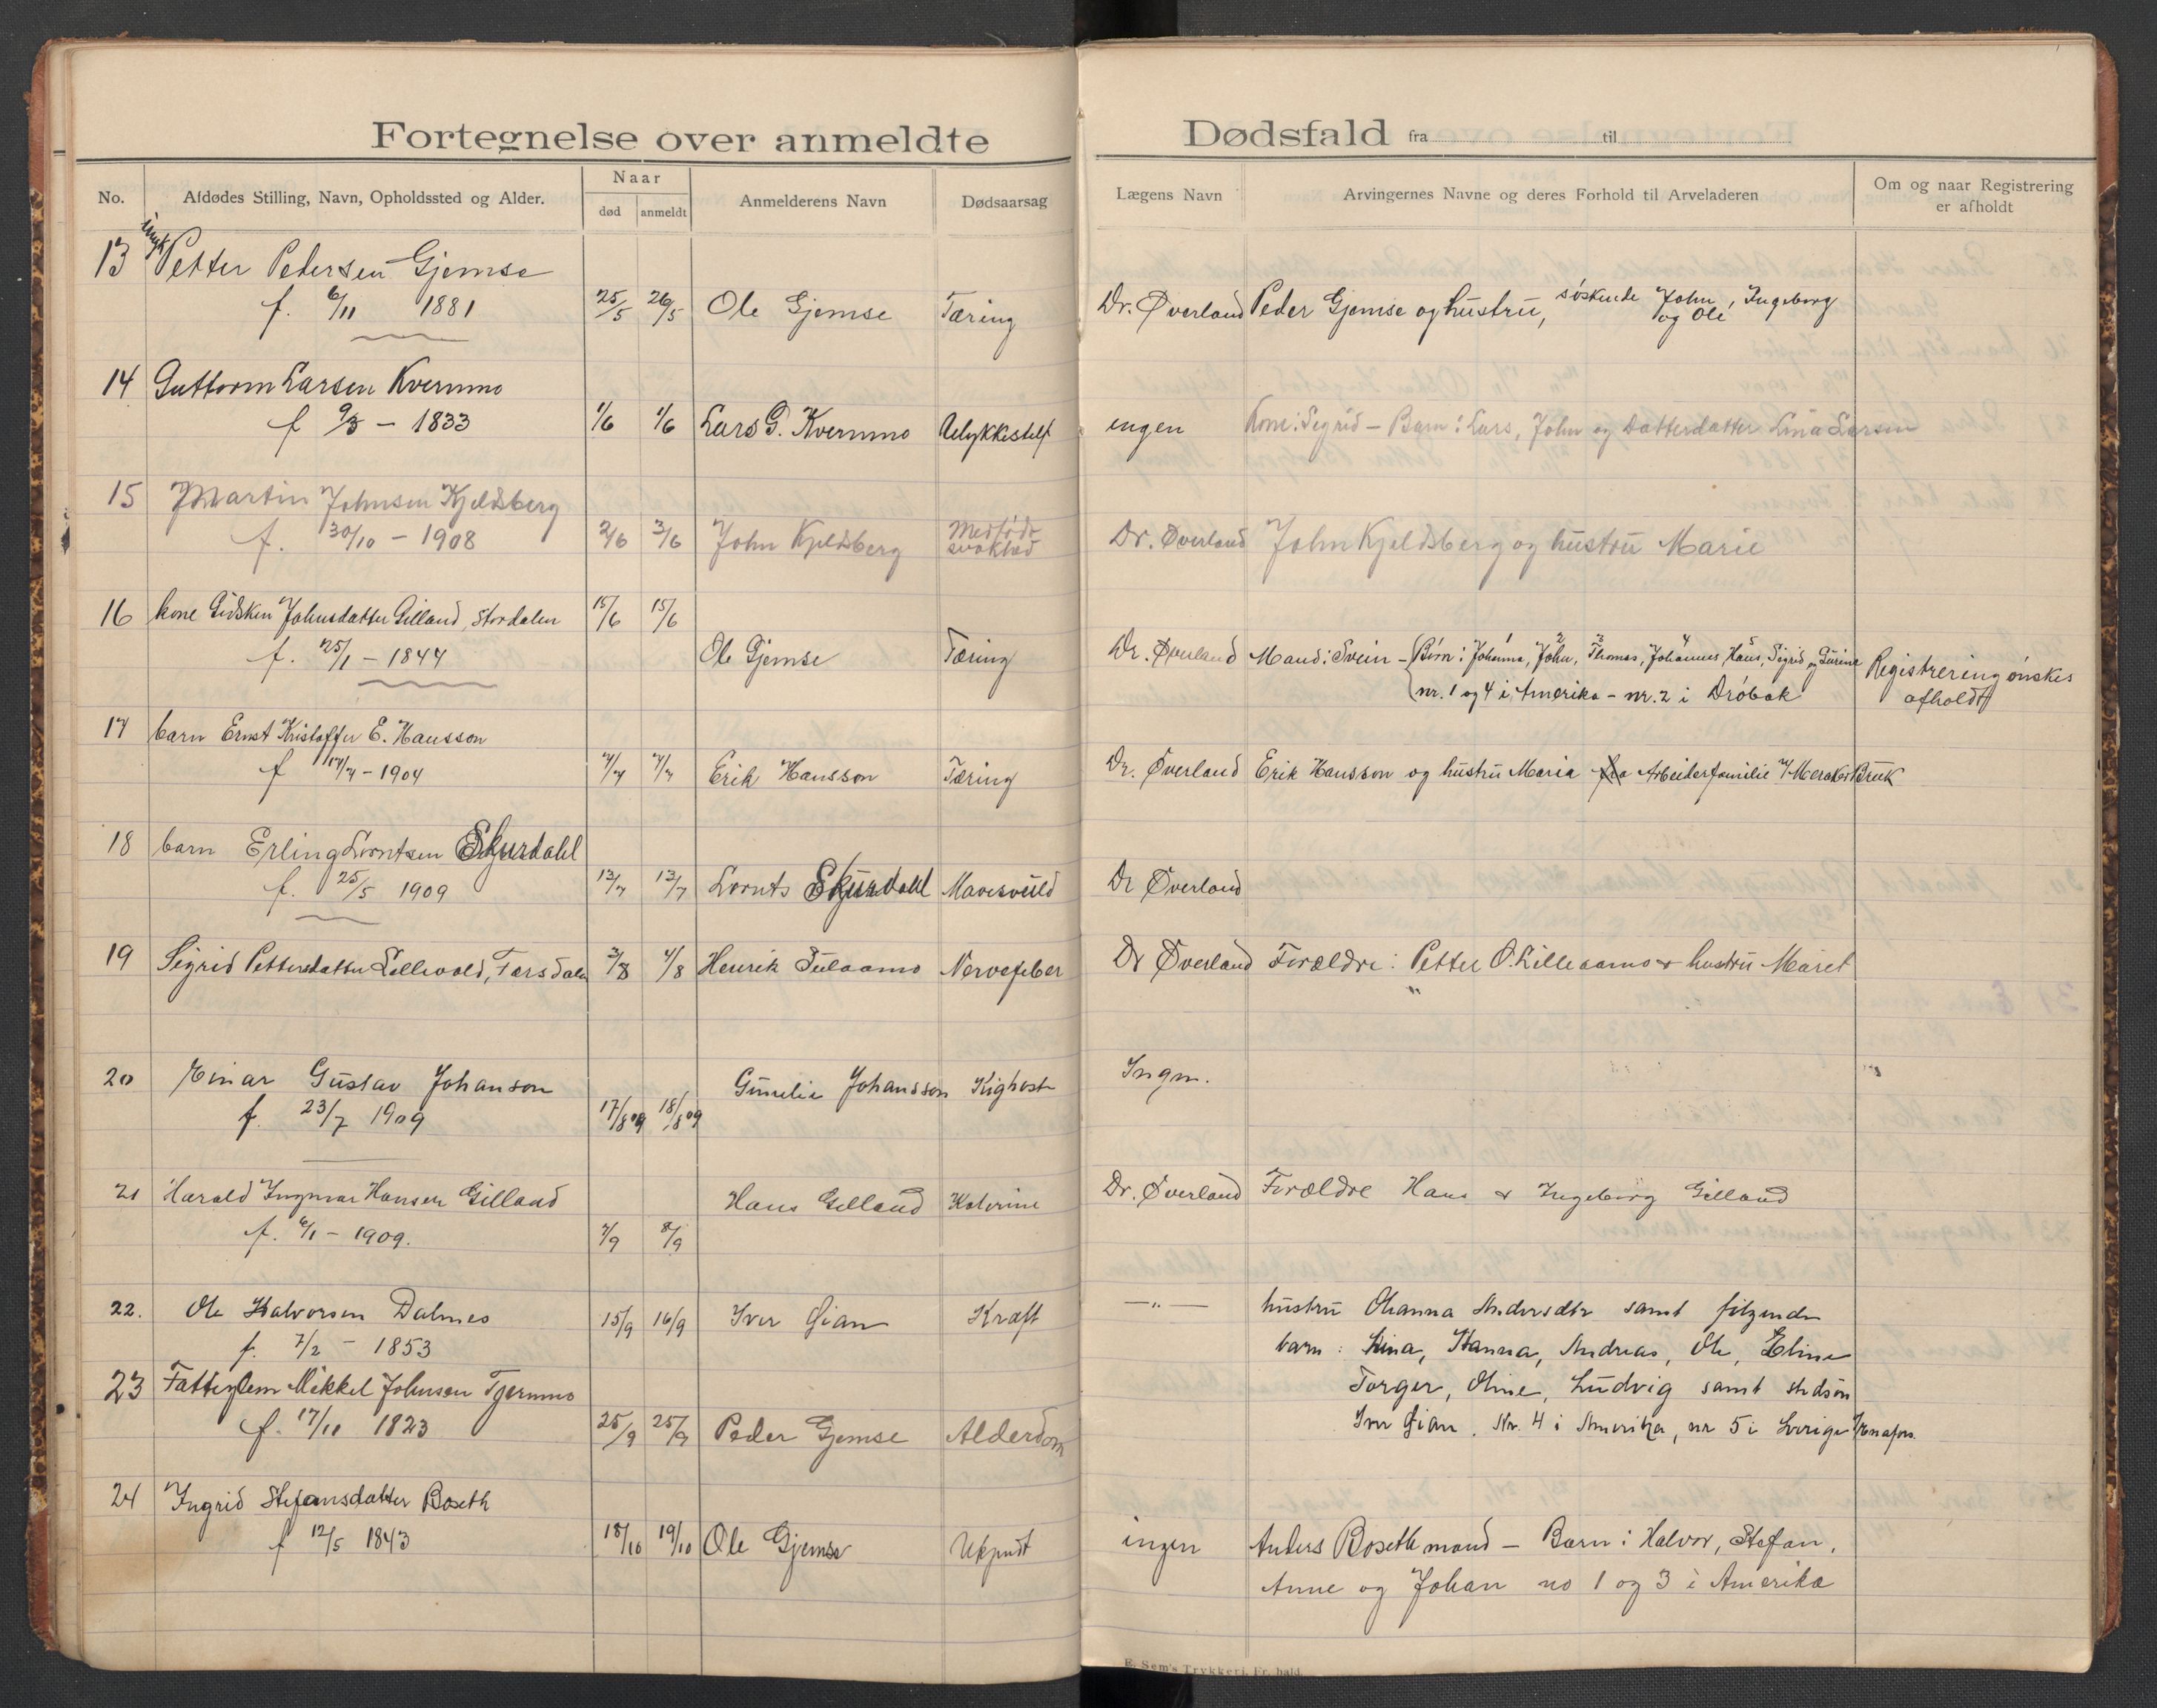 Fortegnelse over anmeldte Dødsfald fra til
No. Afdødes Stilling, Navn, Opholdssted og Alder. Naar død anmeldt Anmelderens Navn Dødsaarsag Lægens Navn Arvingernes Navne og deres Forhold til Arveladeren Om og naar Registrering er afholdt
13 Petter Pedersen Gjemse
f. 6/11 1881 25/5 26/5 Ole Gjemse Tæring Dr. Øverland Peder Gjemse og hustru, søskende John, Ingeborg og Ole
14 Guttorm Larsen Kvernmo
f 9/3 - 1833 1/6 1/6 Lars G. Kvernmo Ulykkestilf ingen Kone: Sigrid - Barn: Lars, John og Datterdatter Lina Larsen
15 Martin Johnsen Kjeldsberg
f. 30/10 - 1908 2/6 3/6 John Kjeldsberg Medfødt svakhed Dr. Øverland John Kjeldsberg og hustru Marie
16 kone Gidsken Johnsdatter Gilland, Stordalen 15/6 15/6
f. 25/1 - 1844 Ole Gjemse Tæring Dr. Øverland Mand: Svein - Børn: Johanna, John, Thomas, Johannes, Hans, Sigrid og Gurine Registrering ønskes
nr. 1 og 4 i Amerika - nr. 2 i Drøbak afholdt
17 barn Ernst Kristoffer E. Hansson
f 14/7 - 1904 7/7 7/7 Erik Hansson Tæring Dr. Øverland Erik Hansson og hustru Maria fra Arbeiderfamilie v/ Meraker Bruk
18 barn Erling Lorntsen Skurdahl
f. 25/5 1909 13/7 13/7 Lornts Skurdahl Mavesvuld Dr Øverland
19 Sigrid Pettersdatter Lillevold, Torsdalen 3/8 4/8 Henrik Tulaamo Nervefeber Dr Øverland Forældre: Petter O. Lilleaamo & hustru Maret
"
20 Einar Gustav Johanson Gunelie Johansson Kighoste Ingen.
f. 23/7 1909 17/8 09 18/8 09
21 Harald Ingmar Hansen Gilland Hans Gilland Katerine Dr. Øverland Forældre Hans & Ingeborg Gilland
f. 6/1 - 1909. 7/9 8/9
22. Ole Halvorsen Dalmes 15/9 16/9 Iver Gian Kræft — " — hustru Ohanna Andersdtr samt følgende
f. 7/2 - 1853 barn: Lina, Hanna, Andreas, Ole, Eline
23 Fattiglem Mikkel Johnsen Tjernmo Torger, Oline, Ludvig samt stedsøn
f. 17/10 1823 25/9 25/9 Peder Gjemse Alderdom Iver Gian. Nr. 4 i Amerika, nr 5 i Sverige
24 Ingrid Stefansdatter Boseth
f 12/5 1843 18/10 19/10 Ole Gjemse Ukjendt ingen Anders Boseth mand - Barn: Halvor, Stefan,
Anne og Johan no 1 og 3 i Amerika
E. Sem's Trykkeri, Fr. hald.